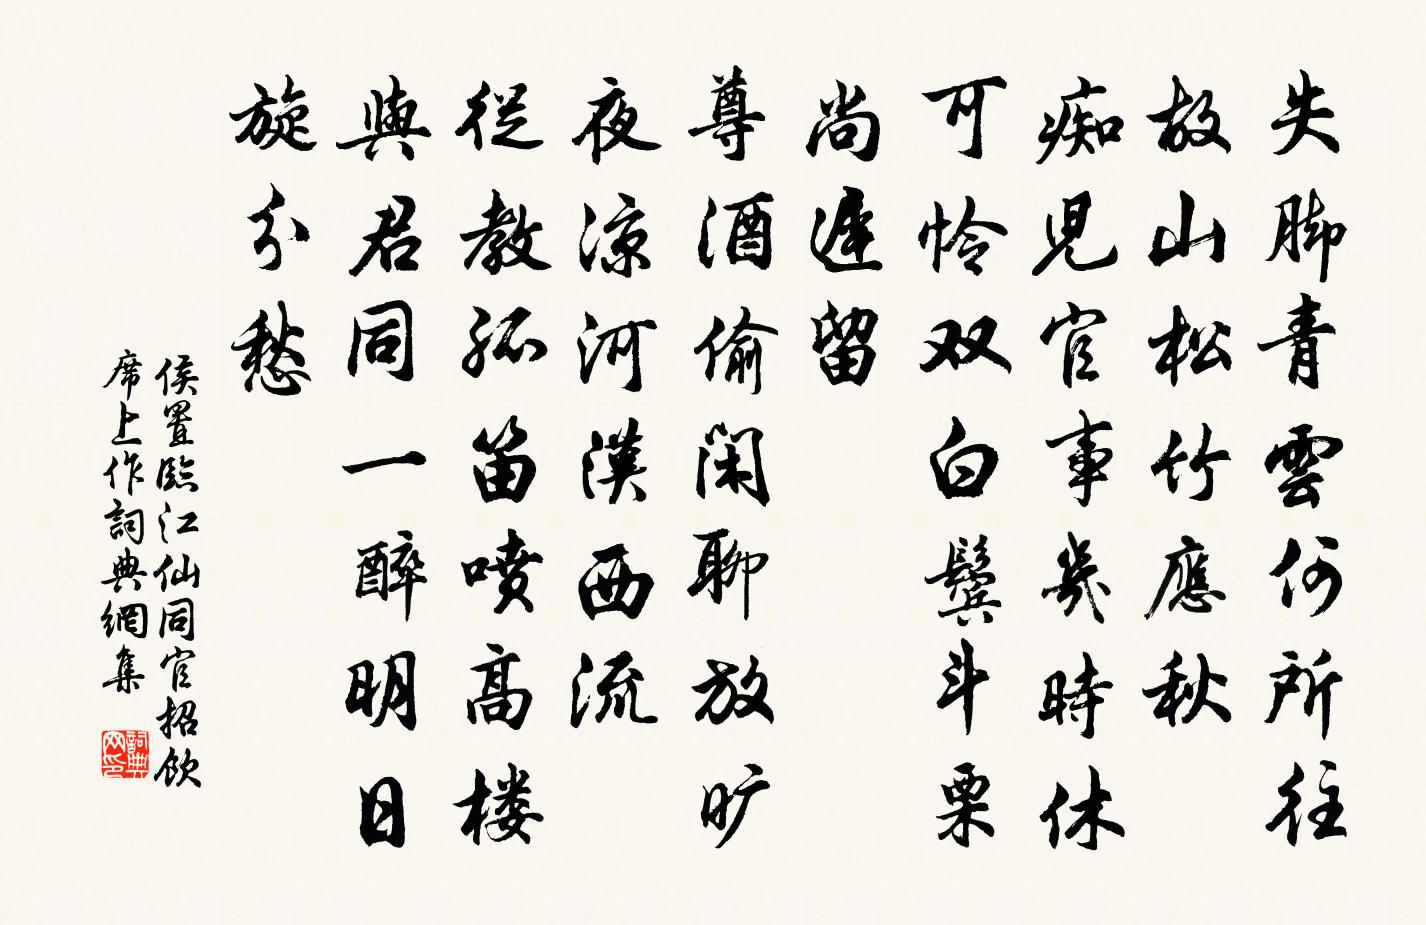 失脚青雲何所往
故山松竹應秋
痴児官事幾時休
可怜双白鬓斗粟
尚遲留
尊酒偷闲聊放旷
夜凉河漢西流
從教孤笛喷高楼
與君同一醉明日
旋分愁
侯置臨江仙同官招飲
席上作詞典網集
詞典网印